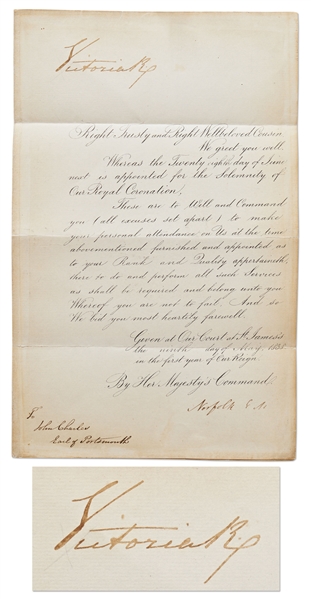 Victoria R
Right Trusty and Right Wellbeloved Cousin
We greet you well.
Whereas the Twenty eighth day of June
next is appointed for the Solemnity of
Our Royal Coronation,
These are to Will and Command
you (all excuses set apart) to make
your personal attendance on Us at the time
abovementioned furnished and appointed as
to your Rank and Quality appertaineth,
there to do and perform all such Services
as shall be required and belong unto you
Whereof you are not to fail. And so
We bid you most heartily farewell.
Given at Our Court at St. James's
the ninth day of May 1838
in the first year of Our Reign
By Her Majesty's Command.
Norfolk E M
To
John Charles
Earl of Portsmouth
Victoria R